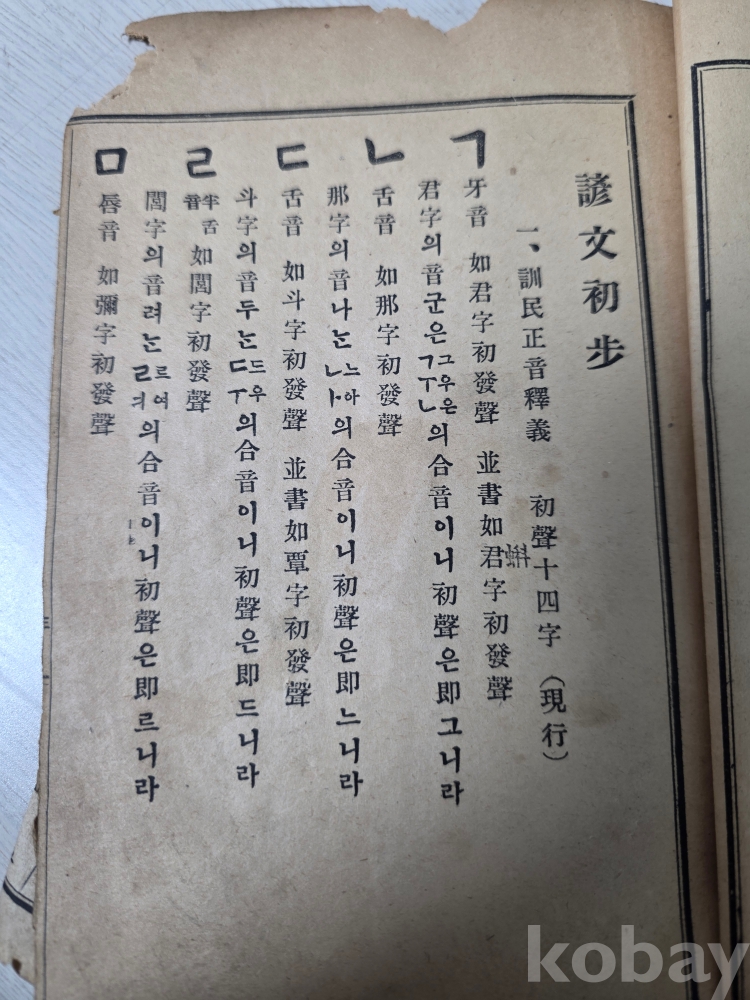 諺文初步
一、訓民正音釋義 初聲十四字 (現行)
ㄱ 牙音 如君字初發聲 並書如君字初發聲
君字의音군은 그우은 ㄱㅜㄴ 의合音이니初聲은即그니라
ㄴ 舌音 如那字初發聲
那字의音나ᄂᆞᆫ 느아 ㄴㅏ 의合音이니初聲은即느니라
ㄷ 舌音 如斗字初發聲 並書如覃字初發聲
斗字의音두ᄂᆞᆫ 드우 ㄷㅜ 의合音이니初聲은即드니라
ㄹ 半舌音 如閭字初發聲
閭字의音려ᄂᆞᆫ 르여 ㄹㅕ 의合音이니初聲은即르니라
ㅁ 唇音 如彌字初發聲
kobay